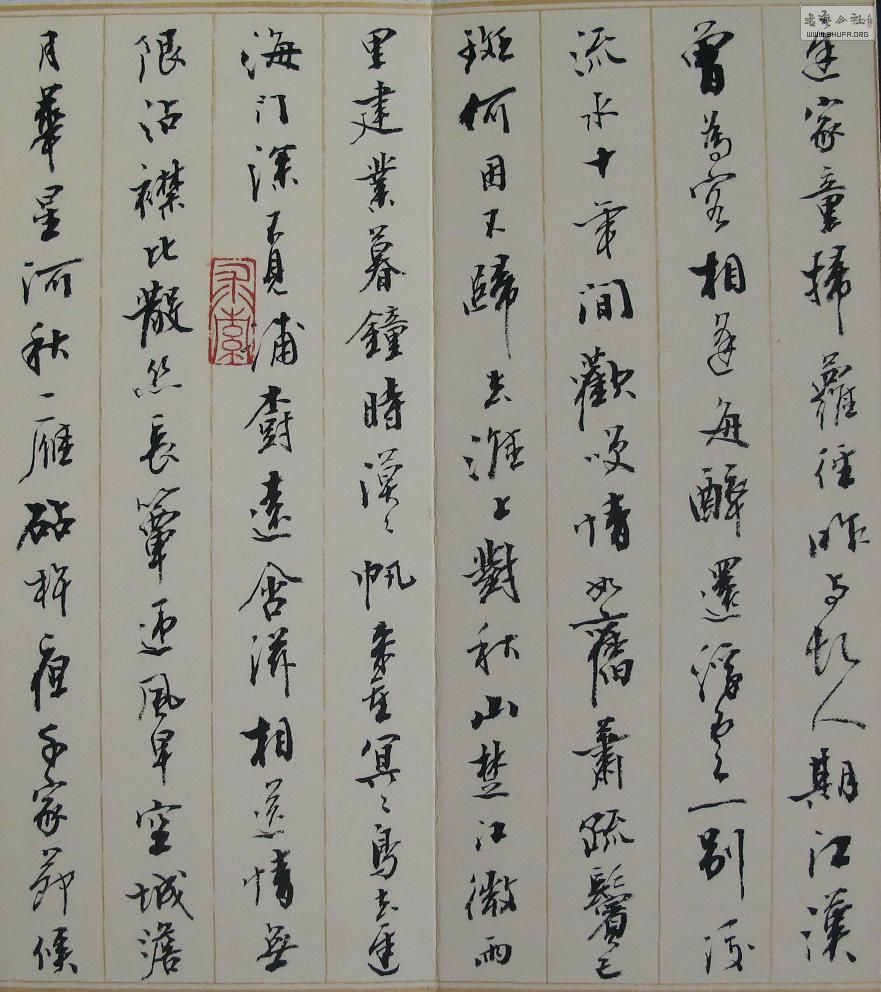 遲家童掃蘿徑昨與故人期江漢
曾為客相逢每醉還浮雲一別後
流水十年間歡笑情如舊蕭疏鬢已
斑何因不歸去淮上對秋山楚江微雨
里建業暮鐘時漠〻帆來重冥〻鳥去遲
海門深不見浦樹遠含滋相送情無
限沾襟比散絲長簟迎風早空城澹
月華星河秋一雁砧杵夜千家節候
書藝公社
WWW.SHUFA.ORG